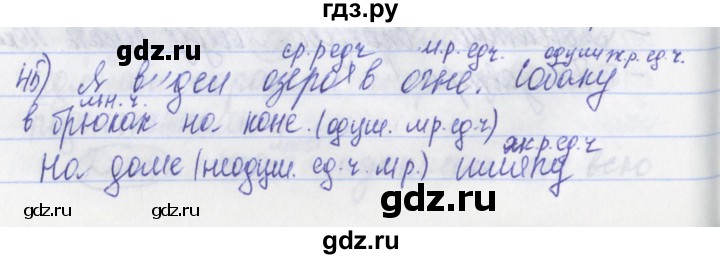 гдз.ру
ср.р.ед.ч м.р.ед.ч. одуш. ж.р.ед.ч.
45) Я видел озеро в огне. Собаку
мн.ч.
в брюках на коне. (одуш. м.р.ед.ч)
ж.р.ед.ч
На доме (неодуш. ед.ч. м.р.) шляпу
gdz.ru gdz.ru gdz.ru
gdz.ru